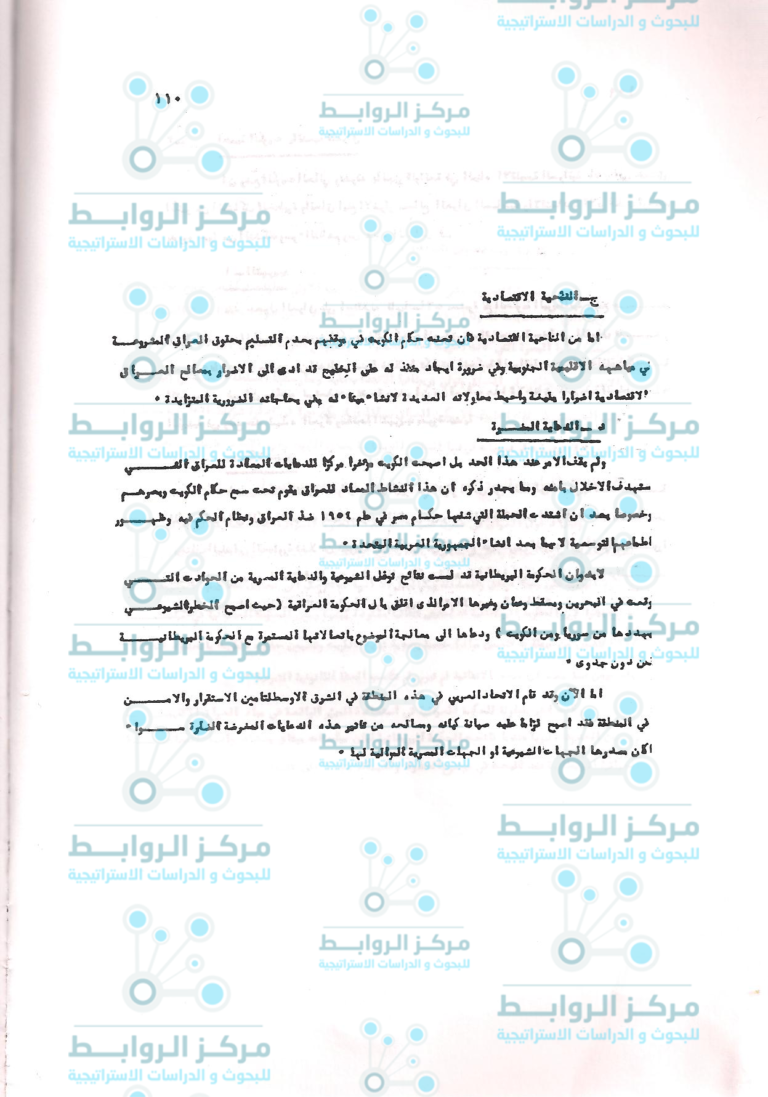 ١١٠
ج ــ الناحية الاقتصادية
اما من الناحية الاقتصادية فان تعنت حكام الكويت في موقفهم بعدم التسليم بحقوق العراق المشروعة
في مياهه الاقليمية الجنوبية وفي ضرورة ايجاد منفذ له على الخليج قد ادى الى الاضرار بمصالح العراق
الاقتصادية اضرارا بليغة واحبط محاولاته العديدة لانشاء ميناء له يفي بحاجاته الضرورية المتزايدة ٠
د ــ الدعاية المضرة
ولم يقف الامر عند هذا الحد بل اصبحت الكويت مؤخرا مركزا للدعايات المضادة للعراق التي
ستهدف الاخلال بامنه ومما يجدر ذكره ان هذا النشاط المضاد للعراق يقوم تحت سمع حكام الكويت وبصرهم
وخصوصا بعد ان اشتدت الحملة التي شنها حكام مصر في عام ١٩٥٤ ضد العراق ونظام الحكم فيه وظهور
اطماعهم التوسعية لا سيما بعد انشاء الجمهورية العربية المتحدة ٠
لابد وان الحكومة البريطانية قد لمست نتائج توغل الشيوعية والدعاية المصرية من الحوادث التي
وقعت في البحرين ومسقط وعمان وغيرها الامر الذي اقلق بال الحكومة العراقية ( حيث اصبح الخطر الشيوعي
يهددها من سوريا ومن الكويت ) ودعاها الى معالجة الموضوع باتصالاتها المستمرة مع الحكومة البريطانية
من دون جدوى ٠
اما الآن وقد قام الاتحاد العربي في هذه المنطقة في الشرق الاوسط لتامين الاستقرار والامن
في المنطقة فقد اصبح لزاما عليه صيانة كيانه ومصالحه من تاثير هذه الدعايات المغرضة الضارة سواء
اكان مصدرها الجهات الشيوعية او الجهات المصرية الموالية لها ٠
مركز الروابط
للبحوث و الدراسات الاستراتيجية